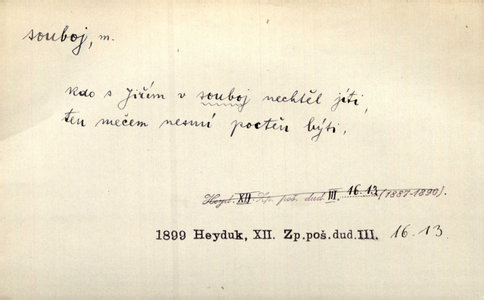 souboj, m.
Kdo s Jiřím v souboj nechtěl jíti,
ten mečem nesmí poctěn býti,
Heyd. XII Zp. poš. dud. III. 16.13 (1887-1890).
1899 Heyduk, XII. Zp.poš.dud.III. 16.13